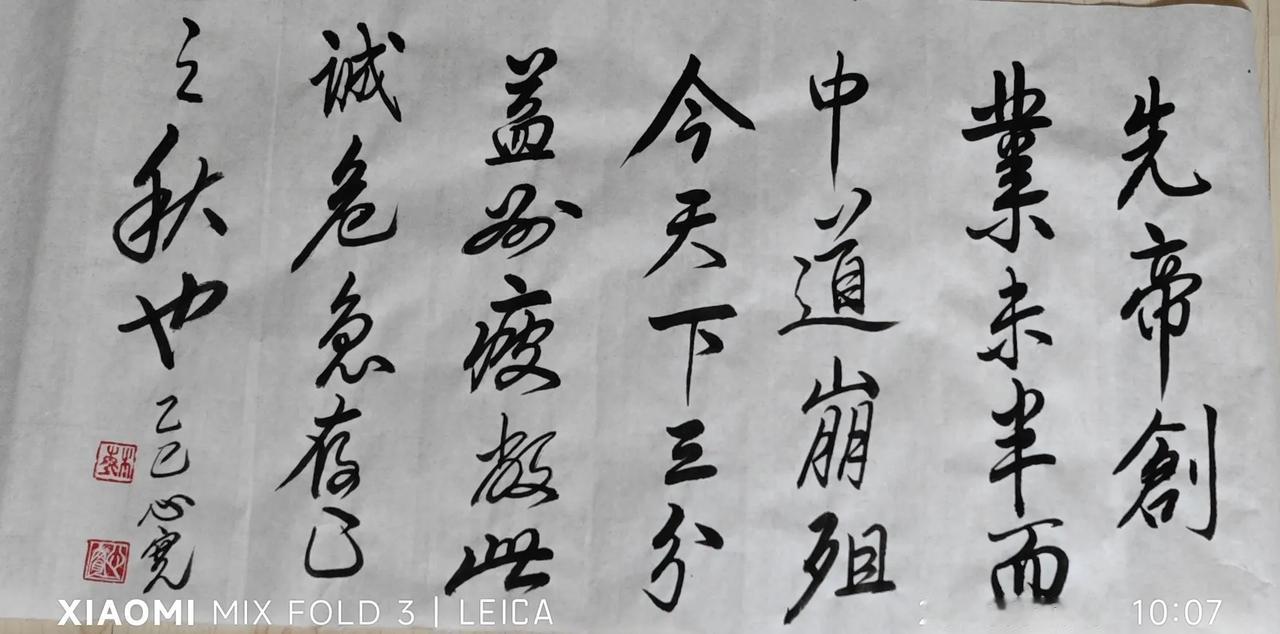 先帝創
業未半而
中道崩殂
今天下三分
益州疲敝此
誠危急存亡
之秋也
乙巳心寬
XIAOMI MIX FOLD 3 | LEICA
10:07